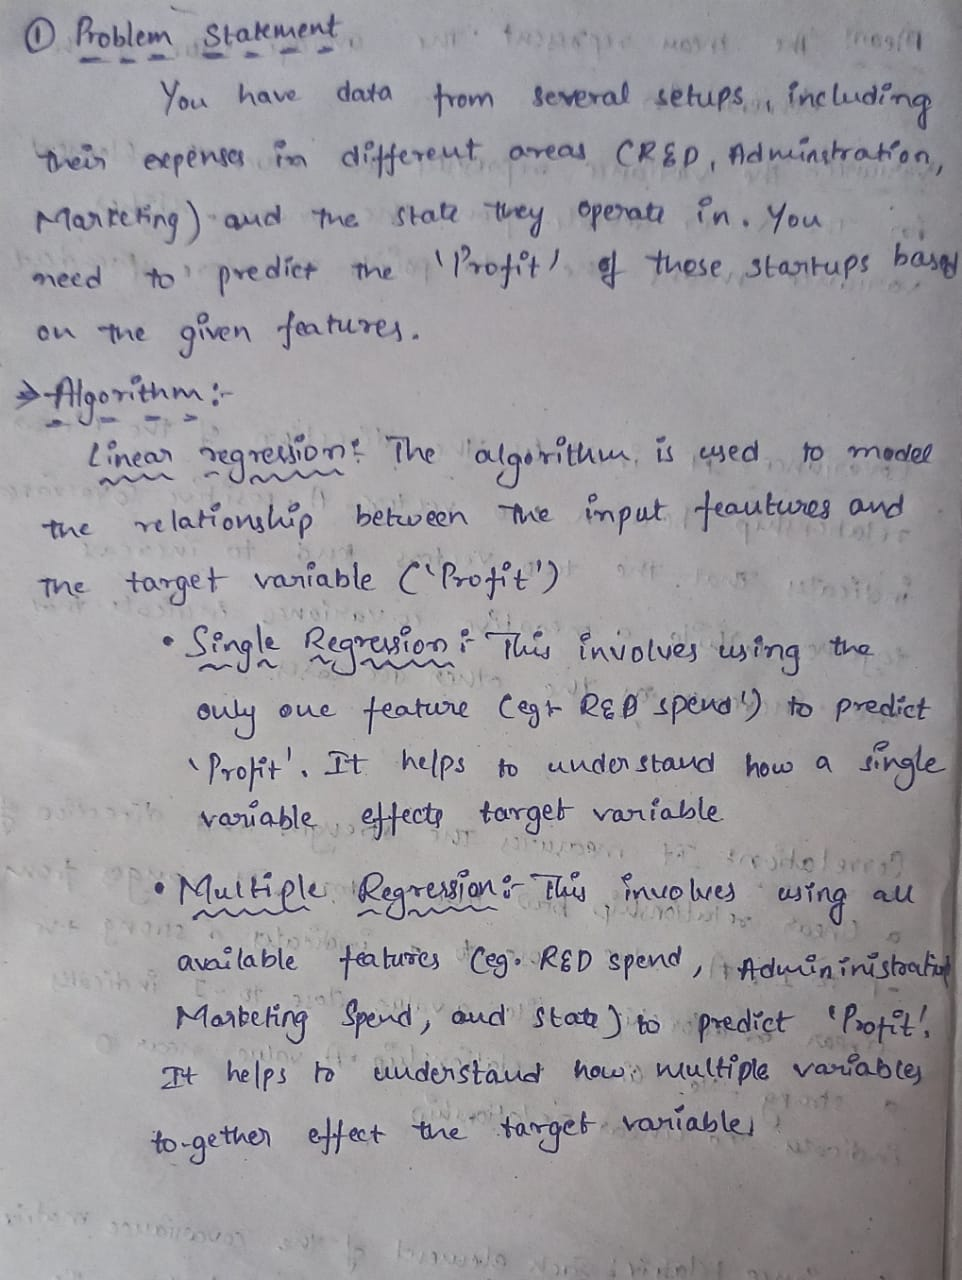 ① Problem Statement
You have data from several setups, including
their expenses in different areas (R&D, Adminstration,
Marketing) and the state they operate in. You
need to predict the 'Profit' of these startups based
on the given features.
⇒ Algorithm :-
Linear regression: The algorithm is used to model
the relationship between the input feautures and
the target variable ('Profit')
• Single Regression : This involves using the
only one feature (eg:- R&D spend') to predict
'Profit'. It helps to understand how a single
variable effects target variable
• Multiple Regression :- This involves using all
available features (eg. R&D spend, Admininistration
Marketing Spend, and State) to predict 'Profit'.
It helps to understand how multiple variables
to-gether effect the target variable.